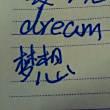 dream
梦想